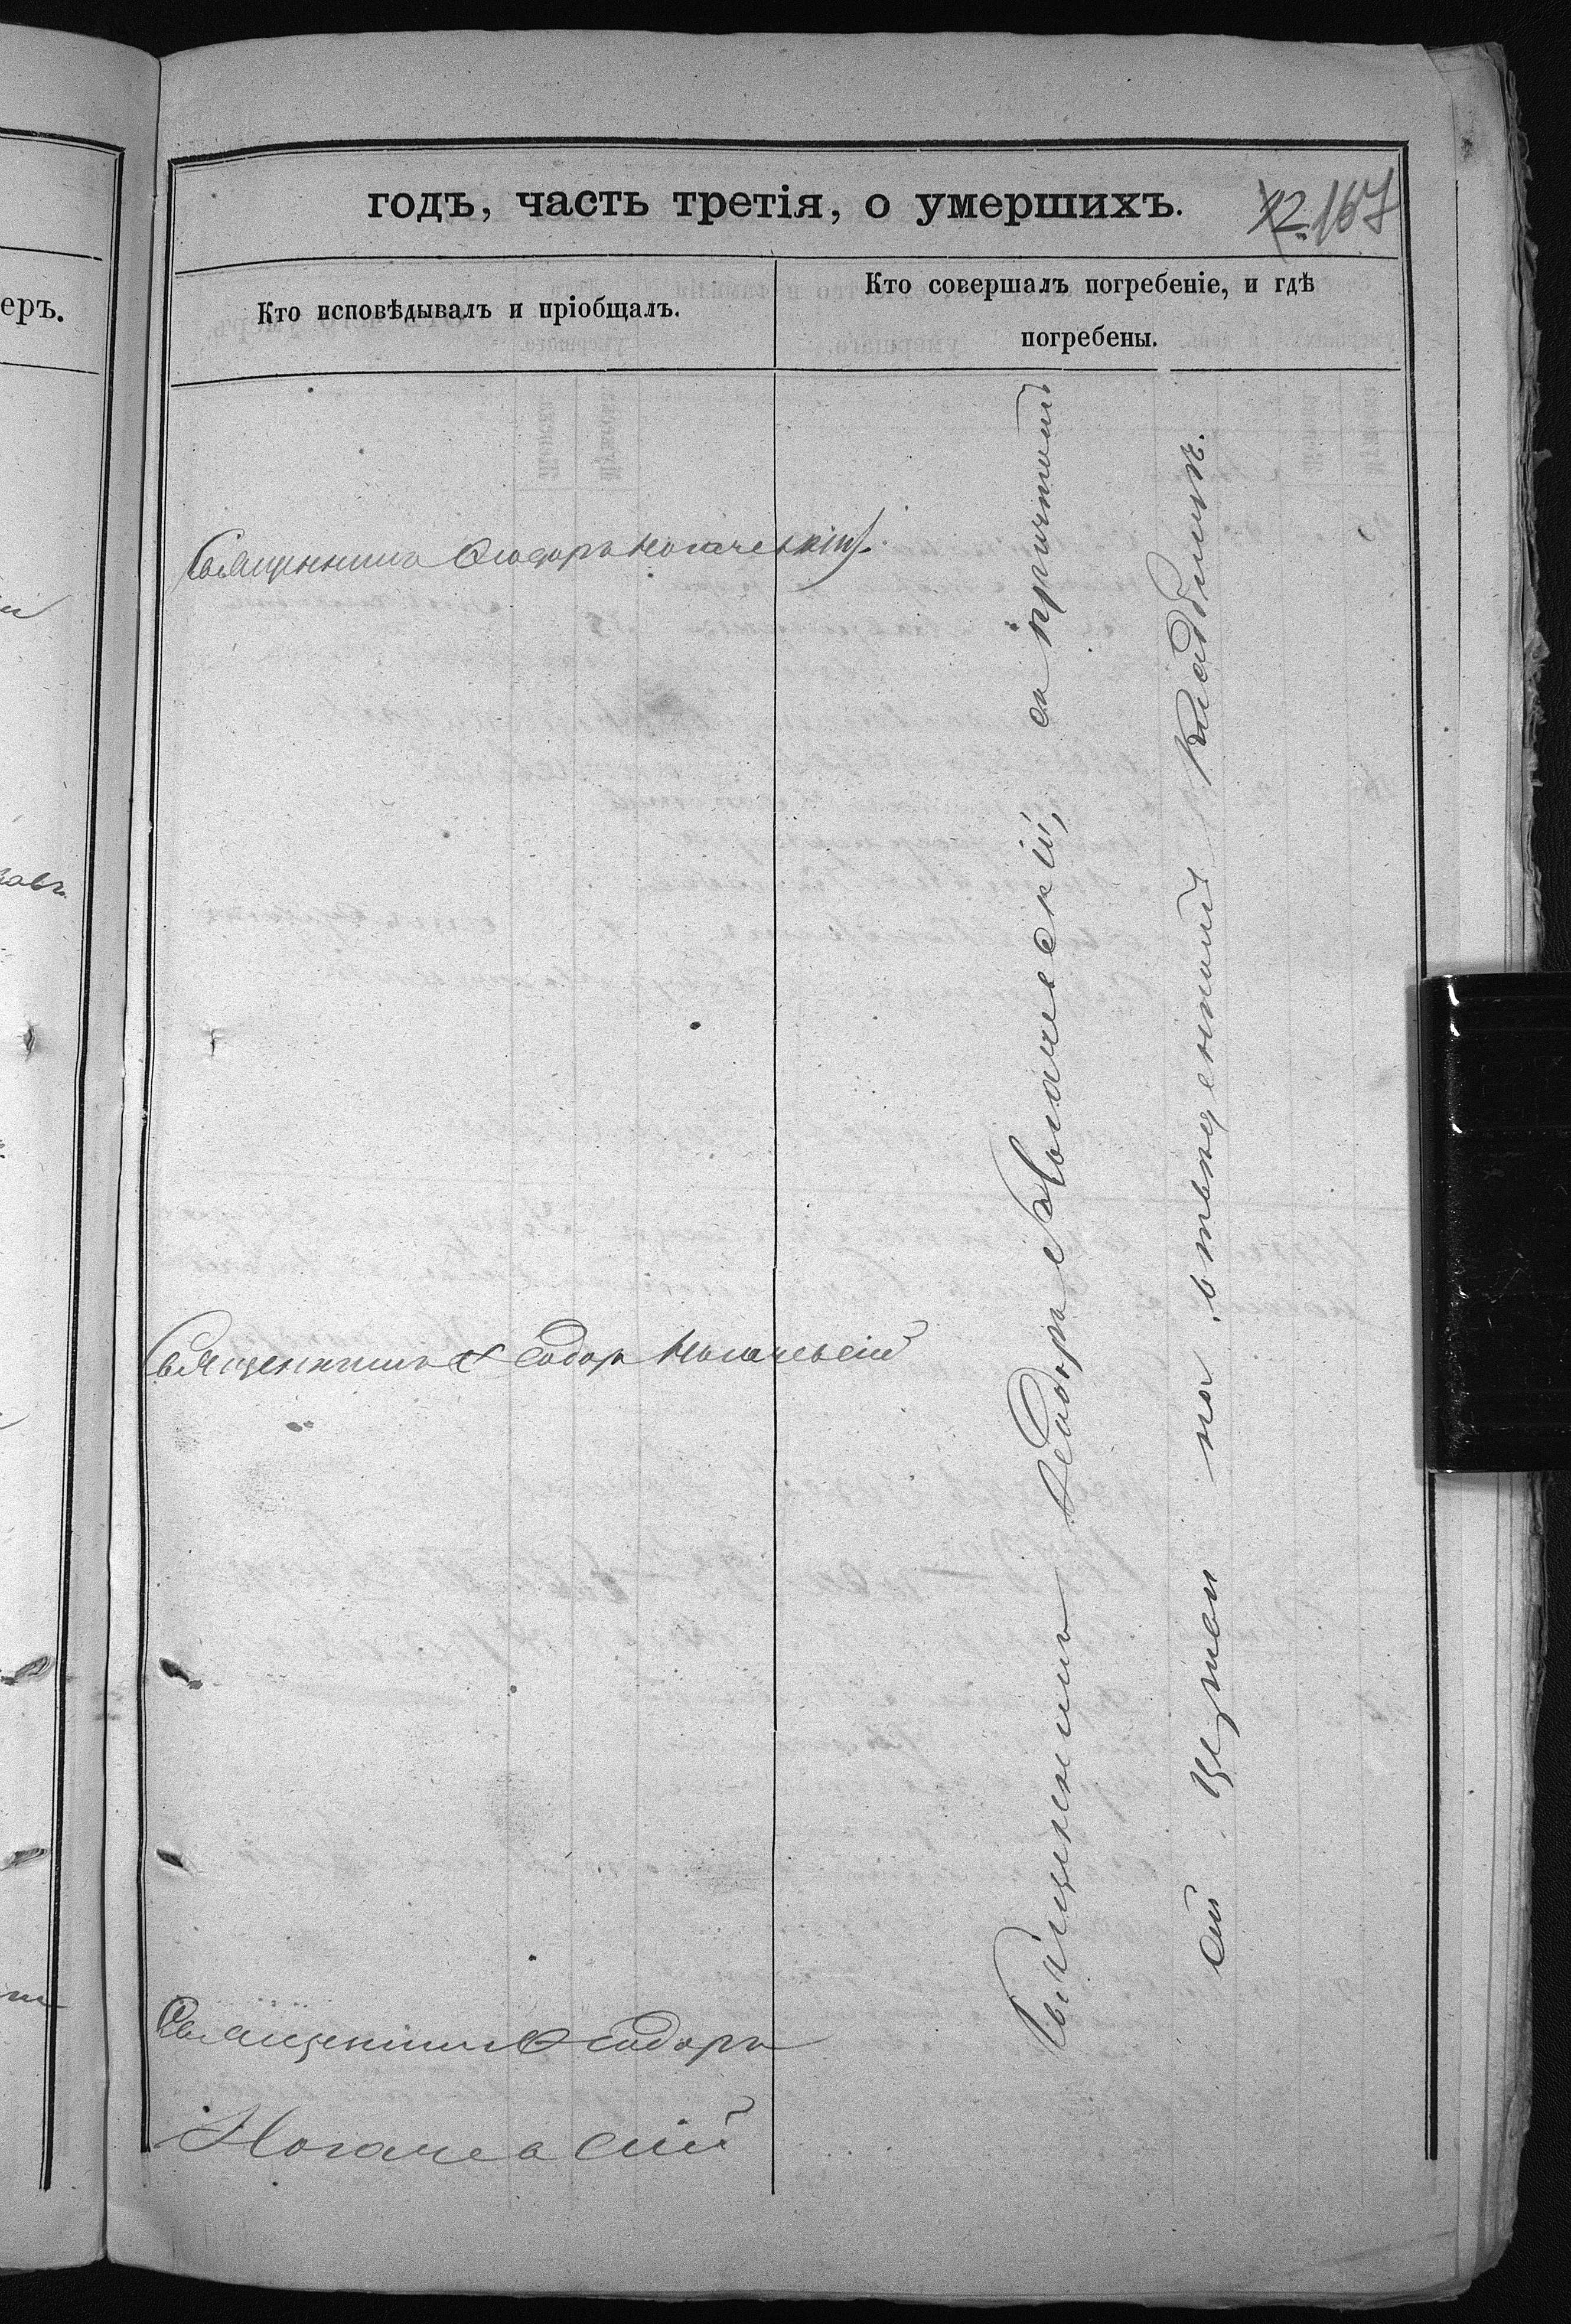 годъ, часть третія, о умершихъ.
167
Кто исповѣдывалъ и пріобщалъ.
Кто совершалъ погребеніе, и гдѣ
погребены.
еръ.
Священникъ Ѳеодоръ Ногачевскій.
Священникъ Ѳеодоръ Ногачевскій
Священникъ Ѳеодоръ
Ногачевскій
Священникъ Ѳеодоръ Ногачевскій, съ причтомъ
на отведенномъ кладбищѣ.